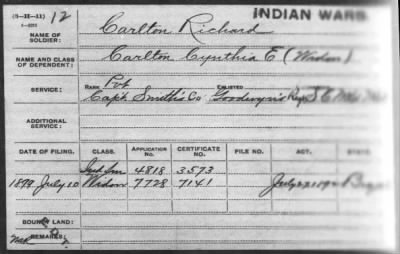 (3-III-11) 12 INDIAN WARS
NAME OF SOLDIER: Carlton Richard
NAME AND CLASS OF DEPENDENT: Carlton Cynthia E (Widow)
SERVICE: RANK Pvt ENLISTED
Capt Smith's Co Goodwyn's Regt S C
ADDITIONAL SERVICE:
DATE OF FILING. CLASS. APPLICATION No. CERTIFICATE No. FILE NO. ACT. STATE
4818 3573
1899 July 10 Widow 7728 7141 July 27, 1892
BOUNTY LAND:
REMARKS: